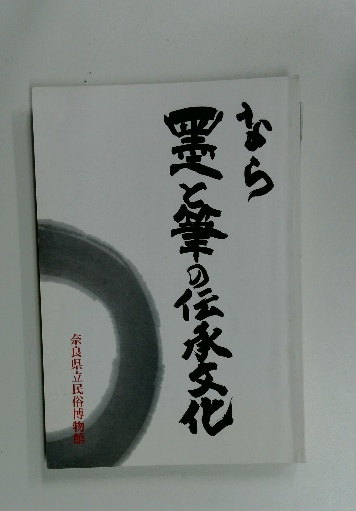 なら
墨と筆の伝承文化
奈良県立民俗博物館